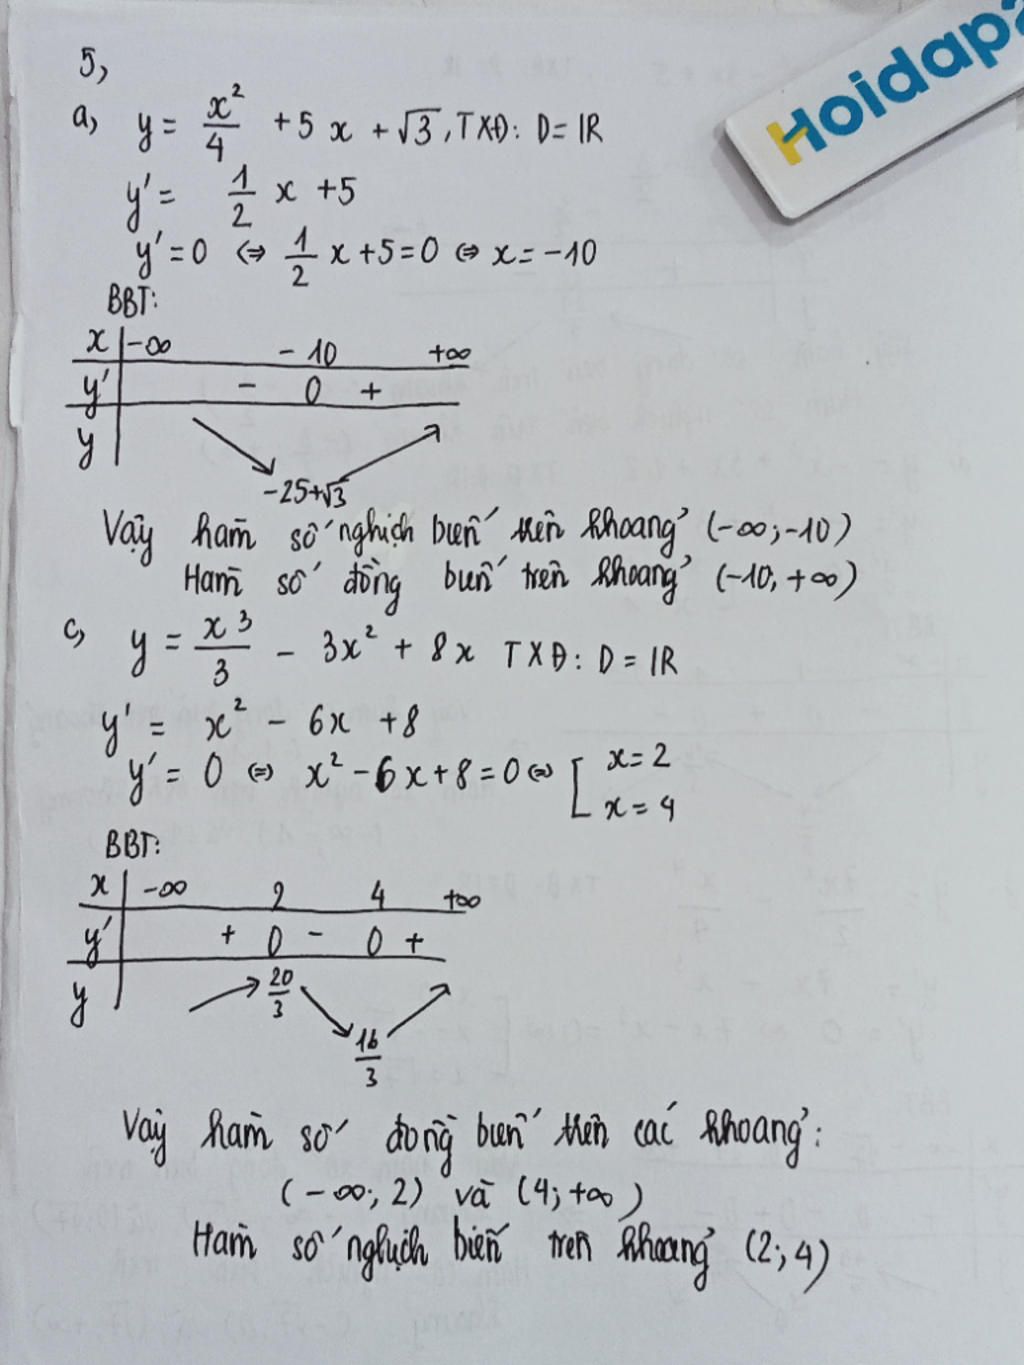 Hoidap
5,
a, y = x²/4 + 5x + √3, TXĐ: D = IR
y' = 1/2 x + 5
y' = 0 ⇔ 1/2 x + 5 = 0 ⇔ x = -10
BBT:
x | -∞ -10 +∞
y' | - 0 +
y
-25+√3
Vậy hàm số nghịch biến trên khoảng (-∞; -10)
Hàm số đồng biến trên khoảng (-10; +∞)
c, y = x³/3 - 3x² + 8x TXĐ: D = IR
y' = x² - 6x + 8
y' = 0 ⇔ x² - 6x + 8 = 0 ⇔ [ x = 2
x = 4
BBT:
x | -∞ 2 4 +∞
y' | + 0 - 0 +
y | 20/3
16/3
Vậy hàm số đồng biến trên các khoảng:
(-∞; 2) và (4; +∞)
Hàm số nghịch biến trên khoảng (2; 4)